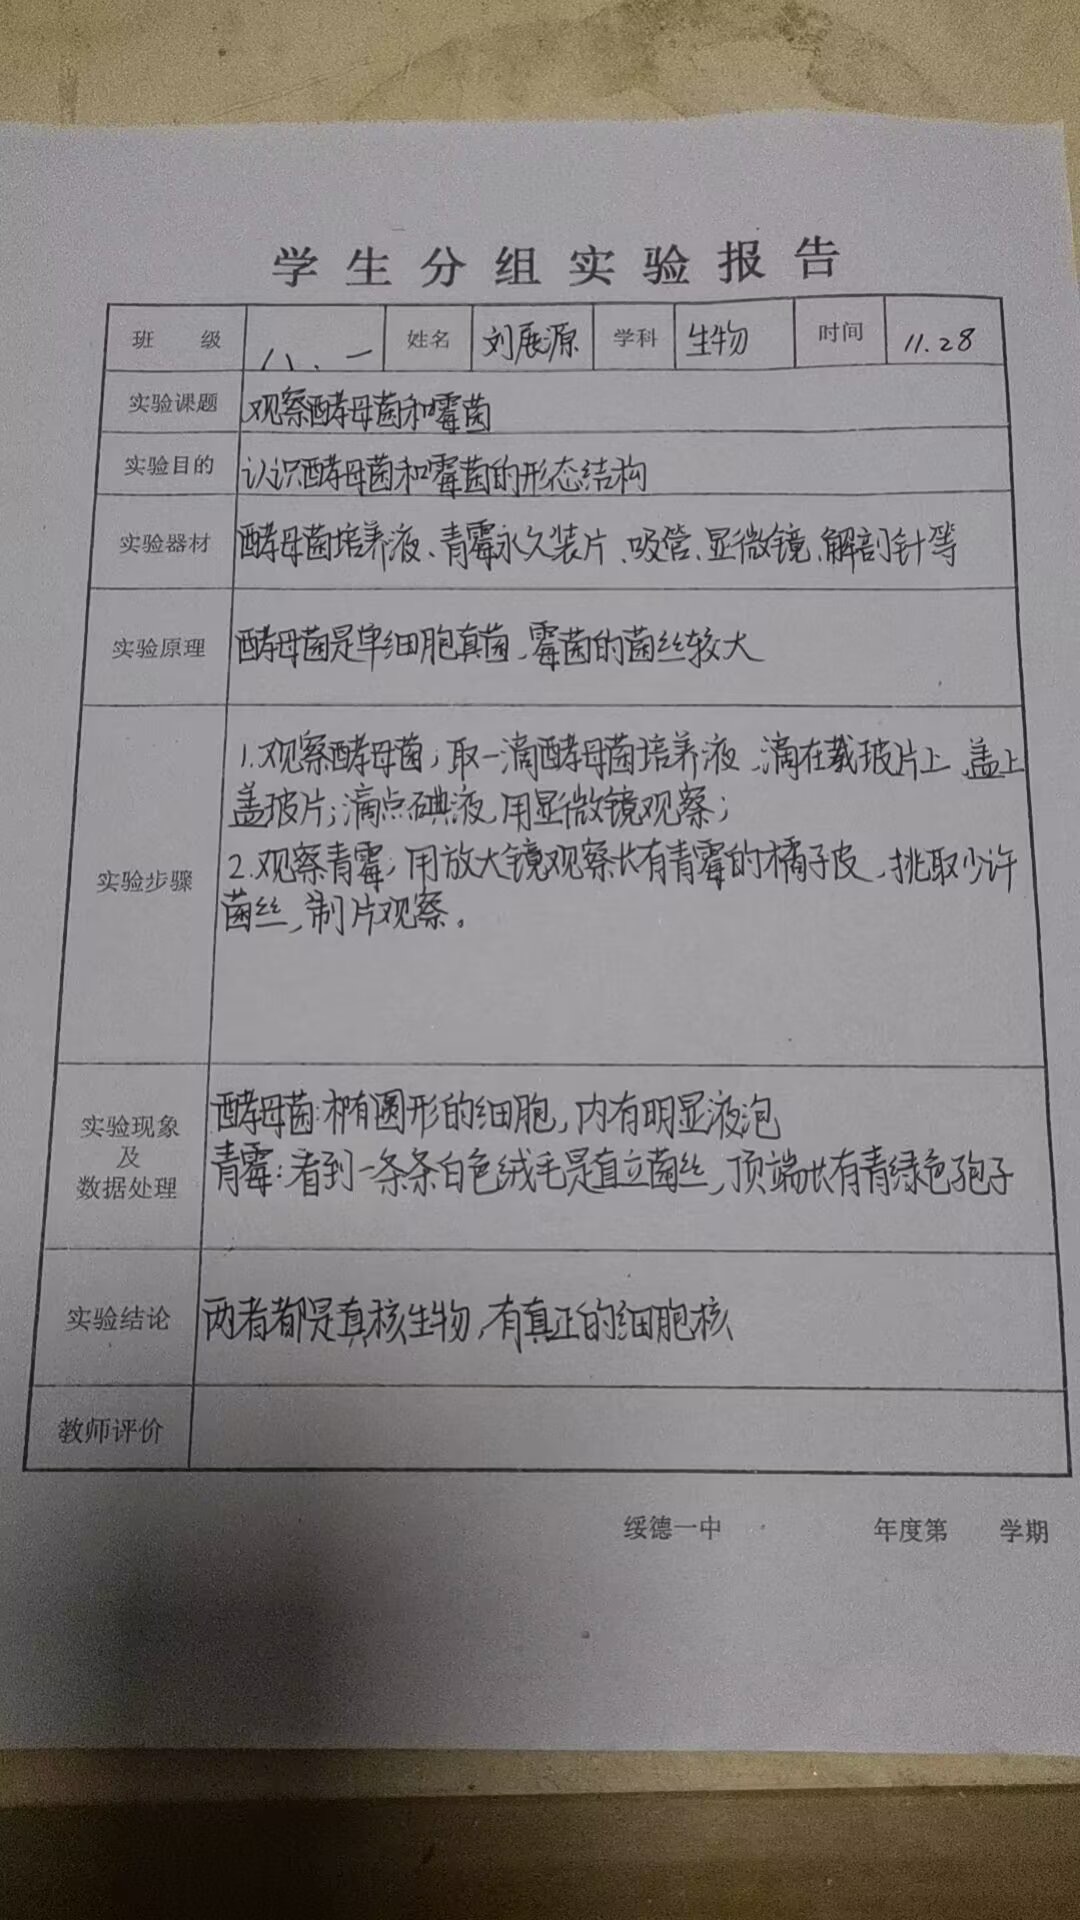 学生分组实验报告
班 级 八、一 姓名 刘展源 学科 生物 时间 11.28
实验课题 观察酵母菌和霉菌
实验目的 认识酵母菌和霉菌的形态结构
实验器材 酵母菌培养液、青霉永久装片、吸管、显微镜、解剖针等
实验原理 酵母菌是单细胞真菌,霉菌的菌丝较大
实验步骤
1.观察酵母菌;取一滴酵母菌培养液,滴在载玻片上,盖上
盖玻片;滴点碘液,用显微镜观察;
2.观察青霉;用放大镜观察长有青霉的橘子皮,挑取少许
菌丝,制片观察。
实验现象
及
数据处理
酵母菌:椭圆形的细胞,内有明显液泡
青霉:看到一条条白色绒毛是直立菌丝,顶端长有青绿色孢子
实验结论 两者都是真核生物,有真正的细胞核
教师评价
绥德一中 年度第 学期